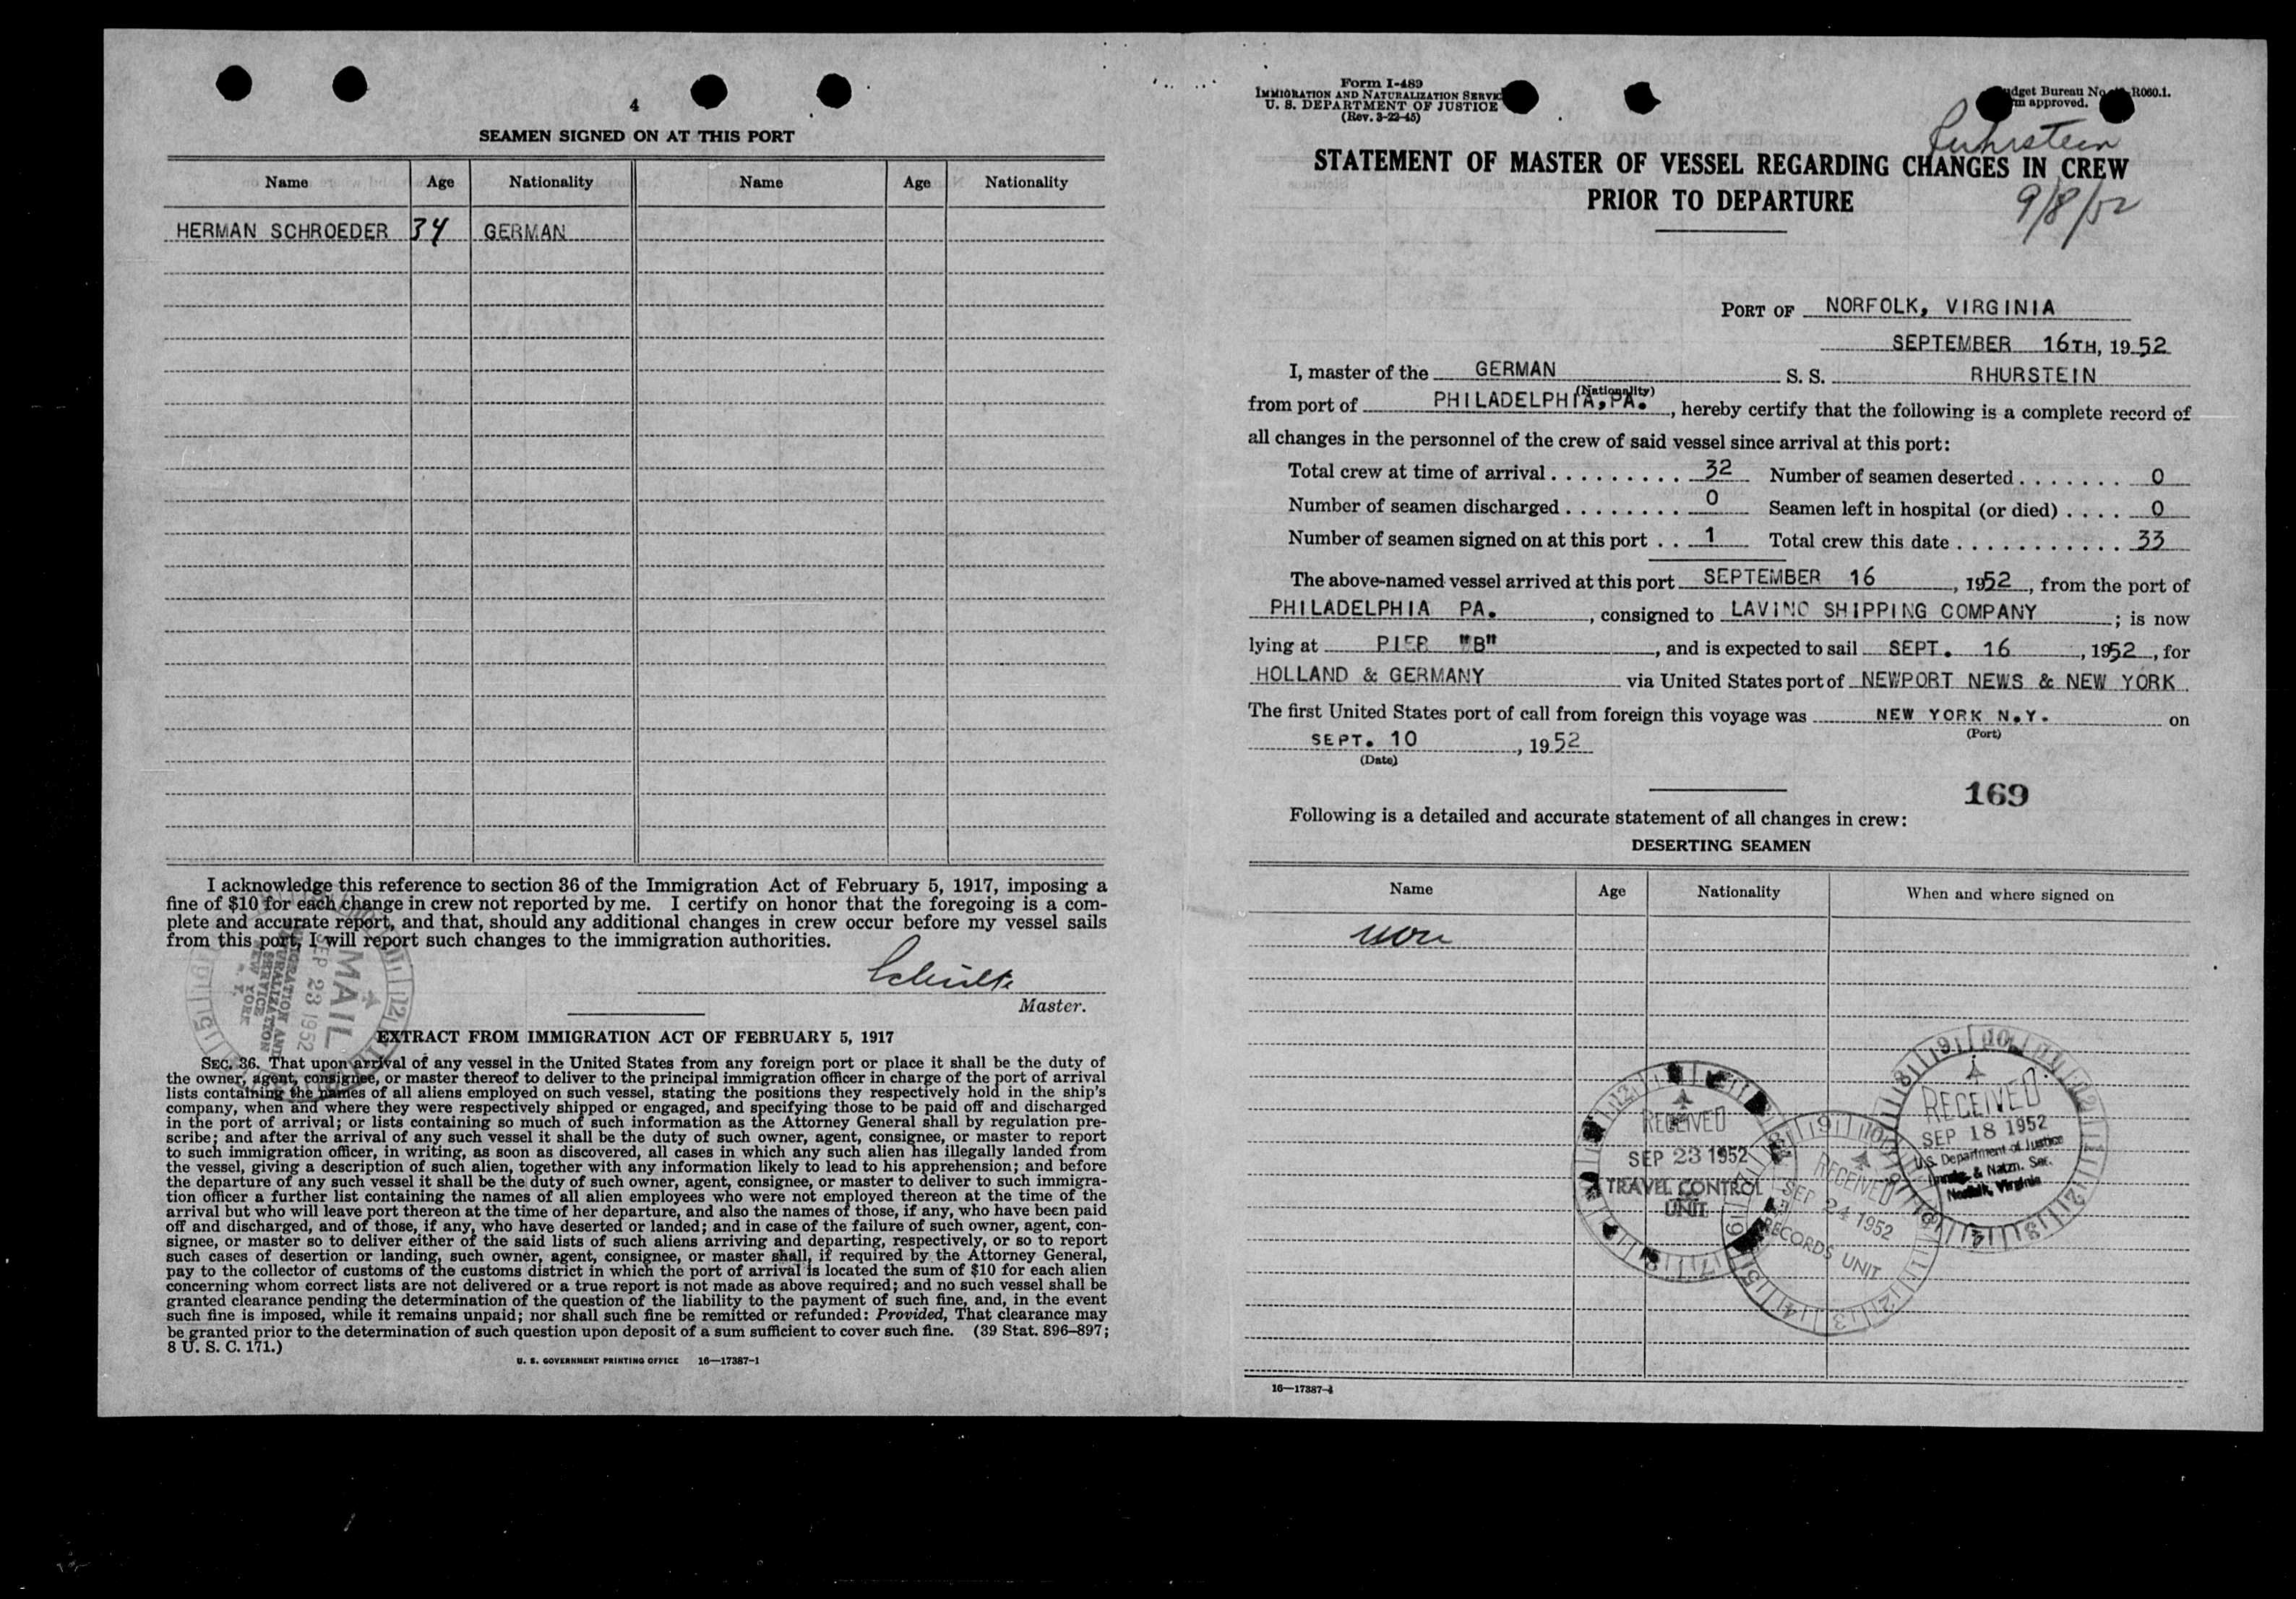 4
SEAMEN SIGNED ON AT THIS PORT
Name Age Nationality Name Age Nationality
HERMAN SCHROEDER 34 GERMAN
I acknowledge this reference to section 36 of the Immigration Act of February 5, 1917, imposing a
fine of $10 for each change in crew not reported by me. I certify on honor that the foregoing is a com-
plete and accurate report, and that, should any additional changes in crew occur before my vessel sails
from this port, I will report such changes to the immigration authorities.
Master.
MAIL
SEP 23 1952
IMMIGRATION AND
NATURALIZATION
SERVICE
NEW YORK
N. Y.
EXTRACT FROM IMMIGRATION ACT OF FEBRUARY 5, 1917
SEC. 36. That upon arrival of any vessel in the United States from any foreign port or place it shall be the duty of
the owner, agent, consignee, or master thereof to deliver to the principal immigration officer in charge of the port of arrival
lists containing the names of all aliens employed on such vessel, stating the positions they respectively hold in the ship's
company, when and where they were respectively shipped or engaged, and specifying those to be paid off and discharged
in the port of arrival; or lists containing so much of such information as the Attorney General shall by regulation pre-
scribe; and after the arrival of any such vessel it shall be the duty of such owner, agent, consignee, or master to report
to such immigration officer, in writing, as soon as discovered, all cases in which any such alien has illegally landed from
the vessel, giving a description of such alien, together with any information likely to lead to his apprehension; and before
the departure of any such vessel it shall be the duty of such owner, agent, consignee, or master to deliver to such immigra-
tion officer a further list containing the names of all alien employees who were not employed thereon at the time of the
arrival but who will leave port thereon at the time of her departure, and also the names of those, if any, who have been paid
off and discharged, and of those, if any, who have deserted or landed; and in case of the failure of such owner, agent, con-
signee, or master so to deliver either of the said lists of such aliens arriving and departing, respectively, or so to report
such cases of desertion or landing, such owner, agent, consignee, or master shall, if required by the Attorney General,
pay to the collector of customs of the customs district in which the port of arrival is located the sum of $10 for each alien
concerning whom correct lists are not delivered or a true report is not made as above required; and no such vessel shall be
granted clearance pending the determination of the question of the liability to the payment of such fine, and, in the event
such fine is imposed, while it remains unpaid; nor shall such fine be remitted or refunded: Provided, That clearance may
be granted prior to the determination of such question upon deposit of a sum sufficient to cover such fine. (39 Stat. 896–897;
8 U. S. C. 171.)
U. S. GOVERNMENT PRINTING OFFICE 16—17387-1
Form I-489
IMMIGRATION AND NATURALIZATION SERVIC
U. S. DEPARTMENT OF JUSTICE
(Rev. 3-22-45)
dget Bureau No. R060.1.
m approved.
Ruhrstein
STATEMENT OF MASTER OF VESSEL REGARDING CHANGES IN CREW
PRIOR TO DEPARTURE
9/8/52
PORT OF NORFOLK, VIRGINIA
SEPTEMBER 16TH, 1952
I, master of the GERMAN S. S. RHURSTEIN
(Nationality)
from port of PHILADELPHIA, PA., hereby certify that the following is a complete record of
all changes in the personnel of the crew of said vessel since arrival at this port:
Total crew at time of arrival . . . . . . . . . 32 Number of seamen deserted . . . . . . . 0
Number of seamen discharged . . . . . . . . 0 Seamen left in hospital (or died) . . . . 0
Number of seamen signed on at this port . . 1 Total crew this date . . . . . . . . . . . 33
The above-named vessel arrived at this port SEPTEMBER 16, 1952, from the port of
PHILADELPHIA PA., consigned to LAVINO SHIPPING COMPANY; is now
lying at PIER "B", and is expected to sail SEPT. 16, 1952, for
HOLLAND & GERMANY via United States port of NEWPORT NEWS & NEW YORK.
The first United States port of call from foreign this voyage was NEW YORK N.Y. on
(Port)
SEPT. 10, 1952
(Date)
169
Following is a detailed and accurate statement of all changes in crew:
DESERTING SEAMEN
Name Age Nationality When and where signed on
RECEIVED
SEP 23 1952
TRAVEL CONTROL
UNIT
RECEIVED
SEP 24 1952
RECORDS UNIT
RECEIVED
SEP 18 1952
U.S. Department of Justice
Immig. & Natzn. Ser.
Norfolk, Virginia
16—17387-1